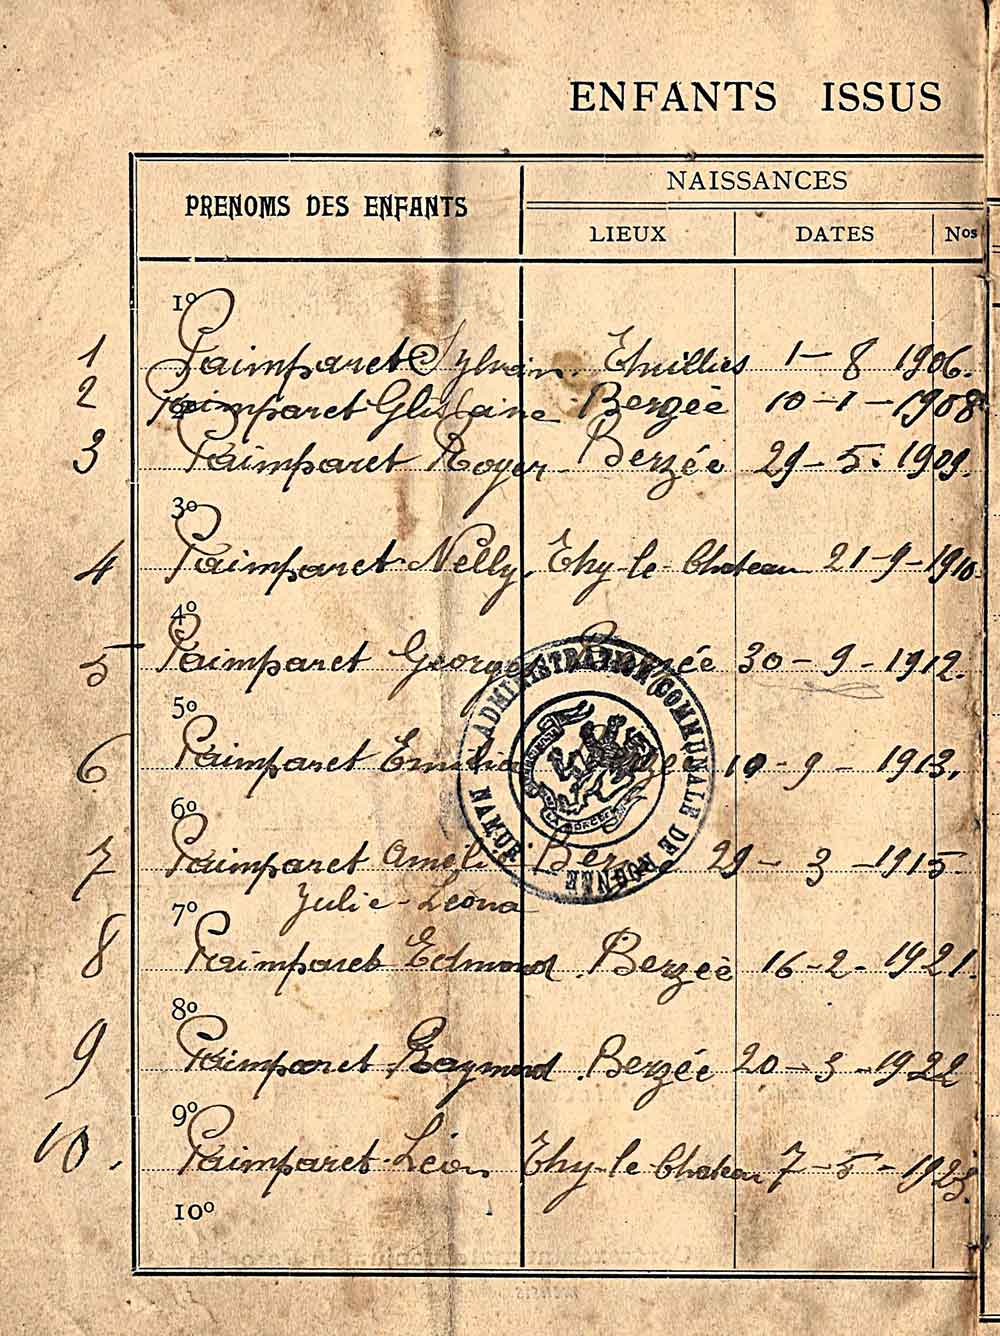 ENFANTS ISSUS
PRENOMS DES ENFANTS
NAISSANCES
LIEUX DATES Nos
1º
1 Paimparet Sylvain. Thuillies 1 - 8 1906.
2 Paimparet Ghislaine Berzée 10 - 1 - 1908
3 Paimparet Roger Berzée 29 - 5. 1909.
3º
4 Paimparet Nelly, Thy-le-Chateau 21-9-1910
4º
5 Paimparet Georges Berzée 30 - 9 - 1912.
5º
6 Paimparet Emilia Berzée 10 - 9 - 1913.
6º
7 Paimparet Berzée 29 - 3 - 1915
Julie-Léona
7º
8 Paimparet Edmond Berzée 16-2-1921.
8º
9 Paimparet Raymond Berzée 20 - 3 - 1922
9º
10. Paimparet Léon Thy-le-Chateau 7 - 5 - 1923.
10º
ADMINISTRATION COMMUNALE DE
NAMUR